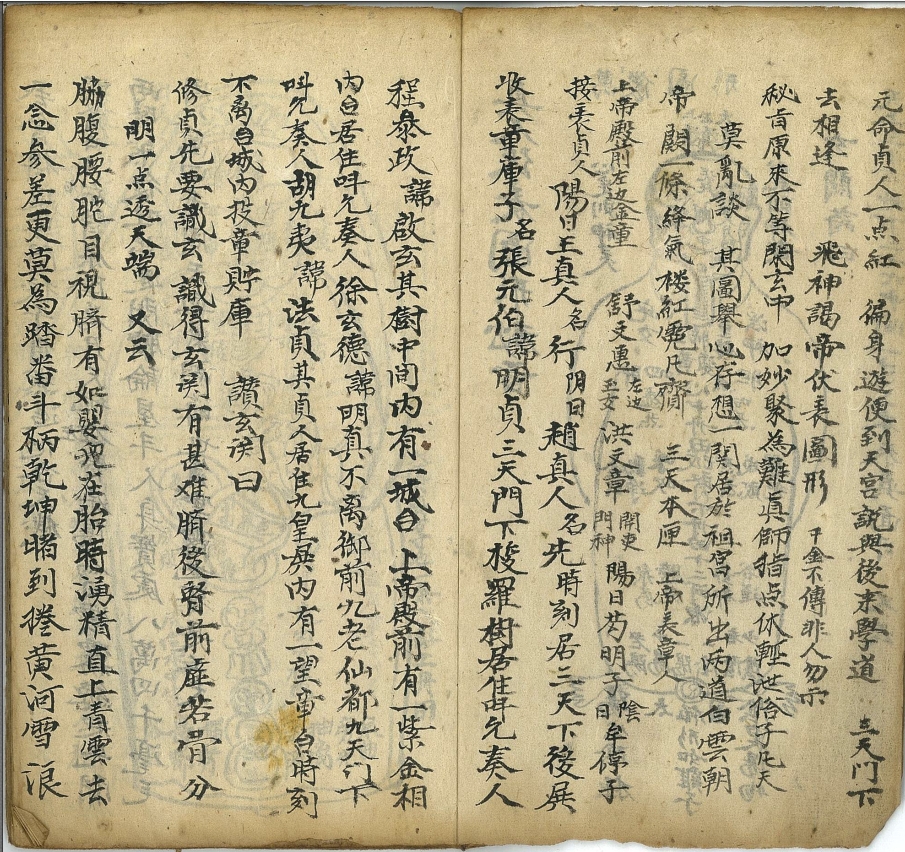 元命貞人一点紅 徧身遊便到天宮説與後来學道 三天門下
去相逢 飛神謁帝伏表圖形 千金不傳非人勿示
秘旨原來不等閑玄中 加妙聚為難真師指点伏輕泄俗子凡夫
莫亂談 其圖舉心存想一関居於祖宮所出两道白雲朝
帝闕一條絳氣 三天本匣 上帝表章人
上帝殿前左边金童 舒文惠 左边玉女 洪文章 門神 陽日芍明子 陰日牟停子
接表貞人 陽日王真人 名行 阴日趙真人 名先 時刻居三天下後展
收表童庫子 名張元伯 諱明貞三天門下梭羅樹居住叫允奏人
程叅政 諱啟玄其樹中间内有一城台 上帝殿前有一紫金相
内白居住叫允奏人徐玄德 諱明真不离御前九老仙都九天门下
叫允奏人胡九夷 諱法貞其貞人居住九皇 内有一望 台時刻
不离台城内投章貯庫 讃玄関曰
修貞先要識玄 識得玄関有甚难臍後腎前 若骨分
明一点透天端 又云
脇腹腰 目視臍有如嬰児在胎時湧精直上青雲去
一念参差更莫為踏 斗柄乾坤 到捲黄河雪浪